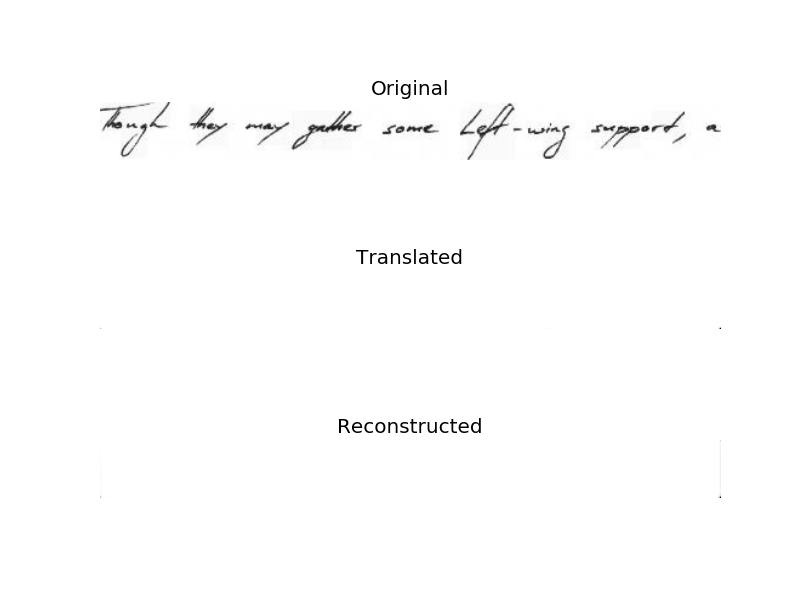 Original
Though they may gather some Left-wing support, a
Translated
Reconstructed